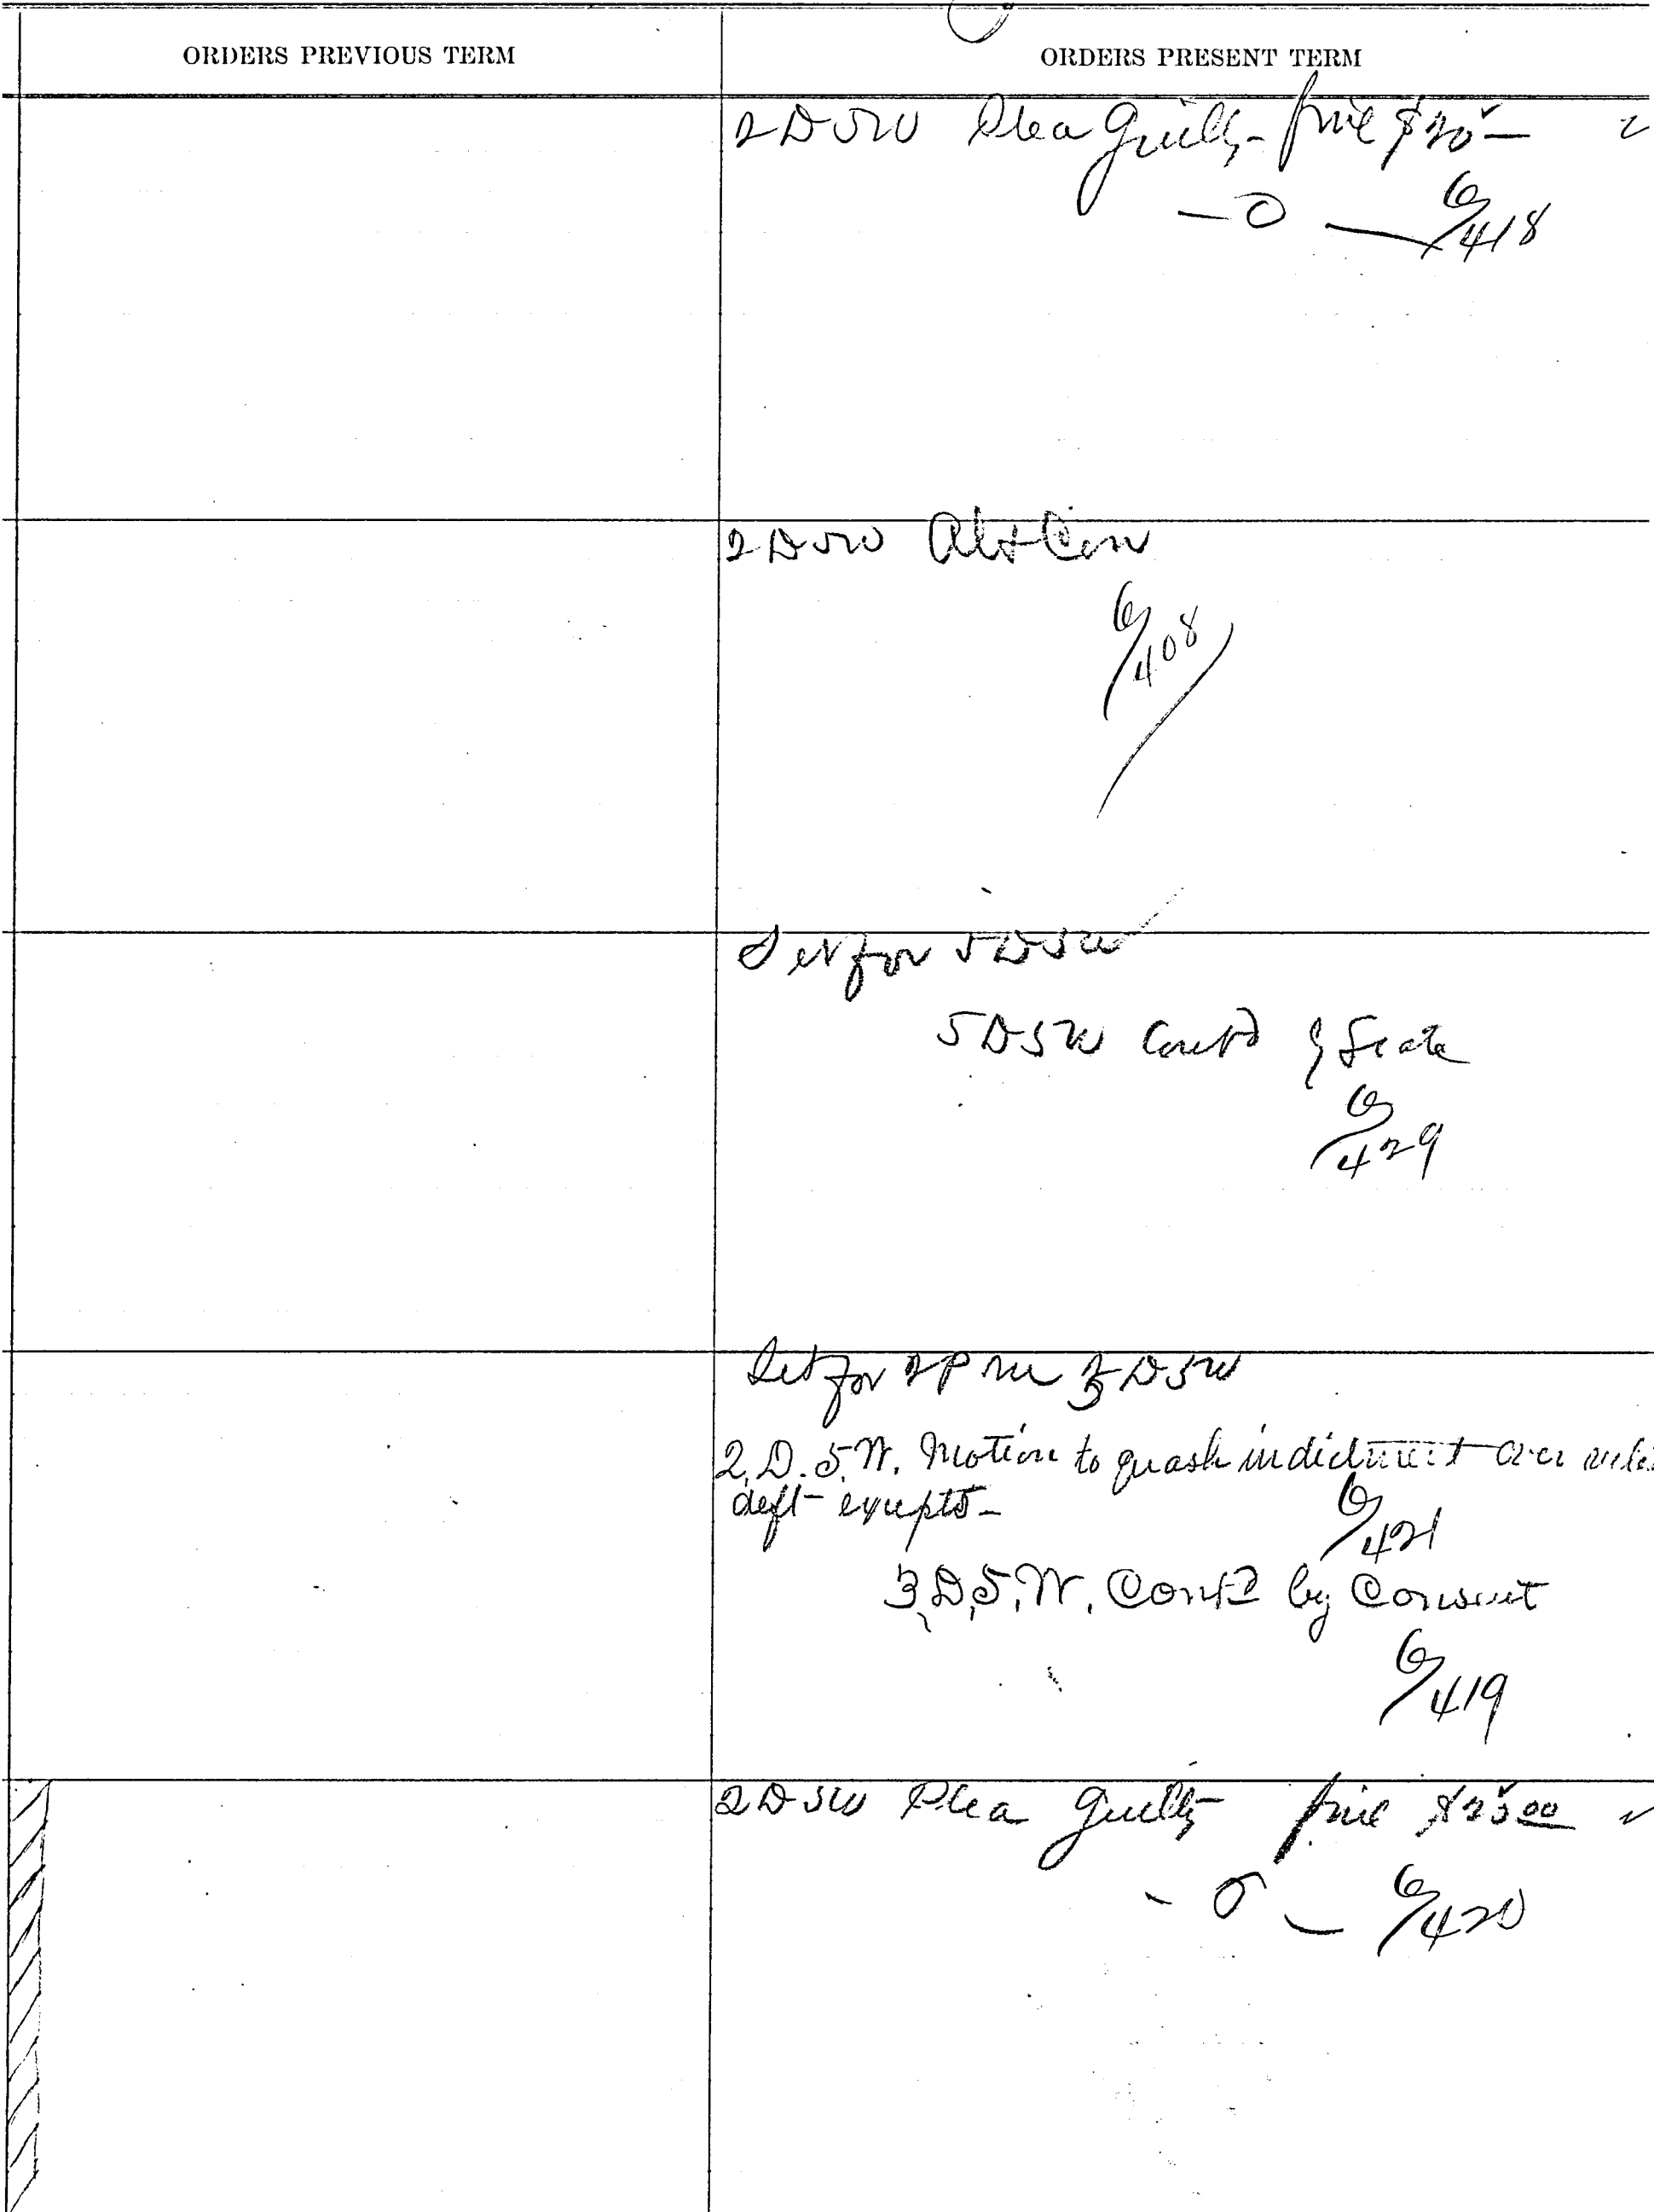 ORDERS PREVIOUS TERM
ORDERS PRESENT TERM
2 D 5 W Plea Guilty - fine
- 0 - 6/418
2 D 5 W
6/408
Set for 5 D 5 W
5 D 5 W Contd State
6/429
Set for 2 P M 3 D 5 W
2. D. 5. W. Motion to quash indictment over
deft excepts -
6/421
3. D. 5. W. Contd by Consent
6/419
2 D 5 W Plea Guilty fine $25 00
- 0 - 6/420